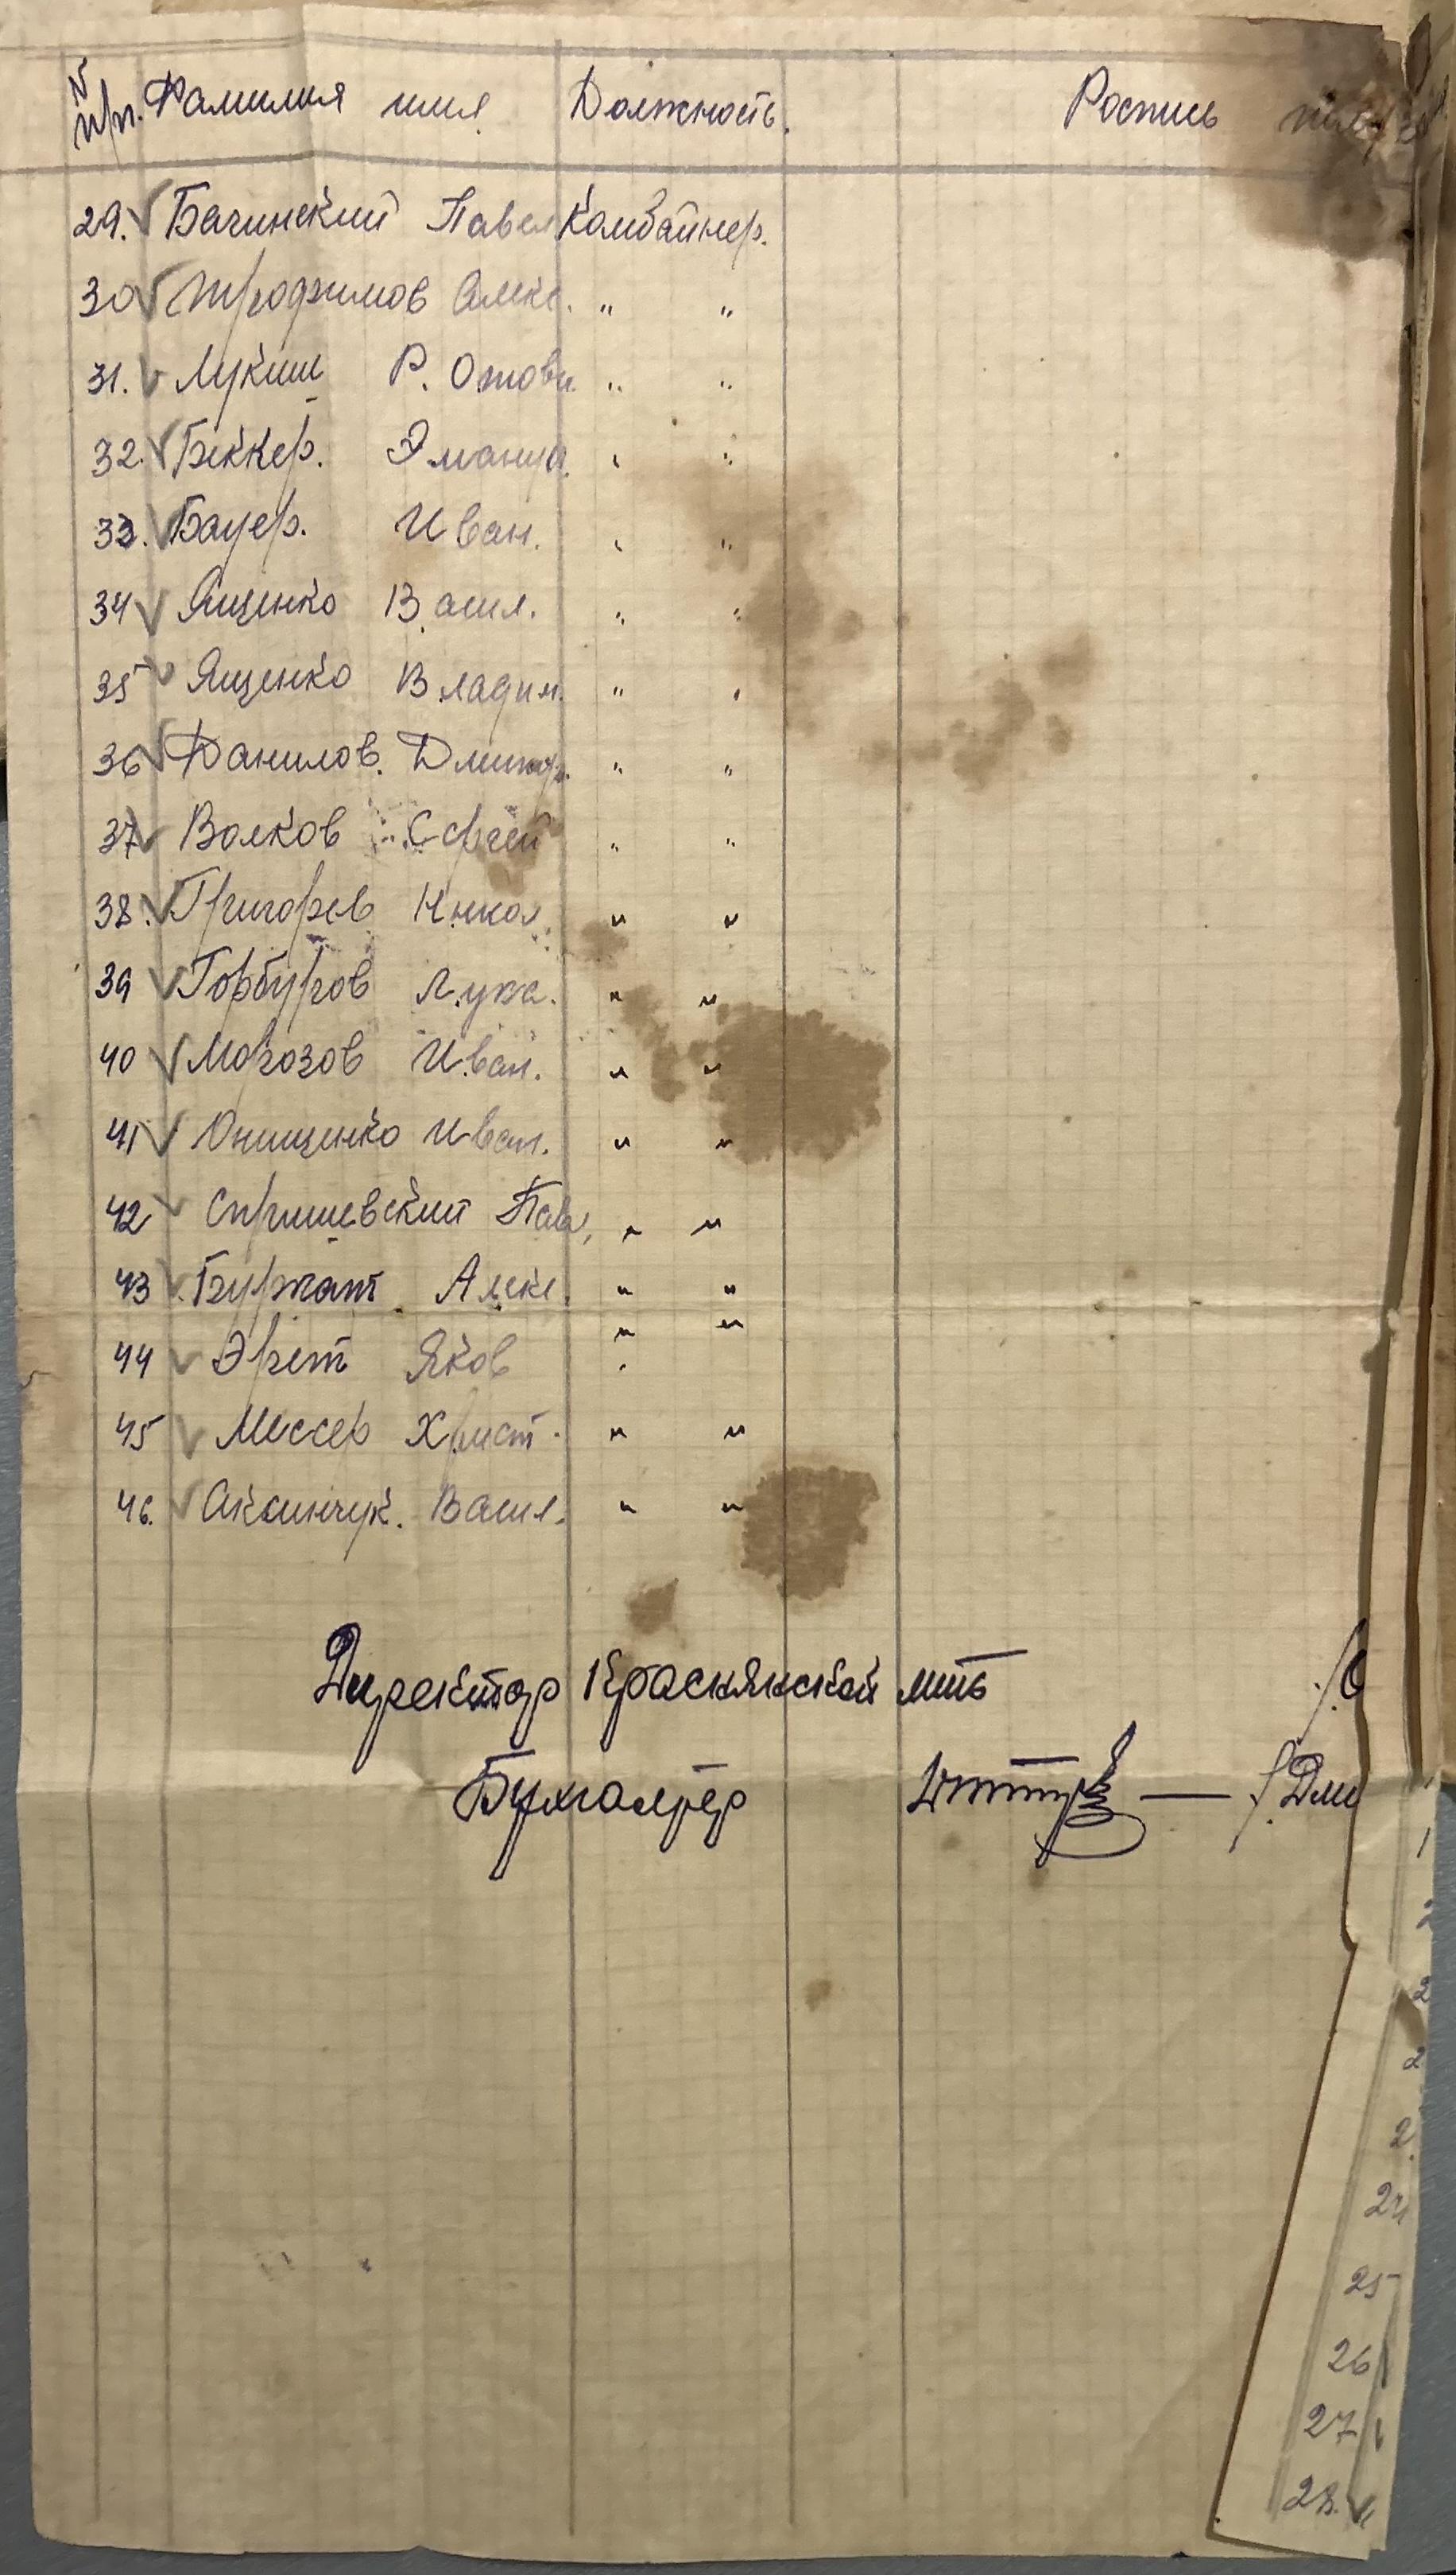 № п/п. Фамилия имя Должность. Роспись
29. Бачинский Павел Комбайнер.
30 Трофимов Алекс. " "
31. Лукиш Р. Отови. " "
32. Беккер. Эмануи. " "
33. Бауер. Иван. " "
34 Ященко Васил. " "
35 Ященко Владим. " "
36 Данилов. Дмитр. " "
37 Волков Сергей " "
38. Григорев Никол " "
39 Горбуров Лука. " "
40 Морозов Иван. " "
41 Онищенко Иван. " "
42 Спришевский Пав. " "
43 Буржат Алекс. " "
44 Эрет Яков " "
45 Мессер Христ. " "
46. Аксинчук. Васил. " "
Директор Краснянской мтс
Бухгалтер /Дми
25
26
27
28.